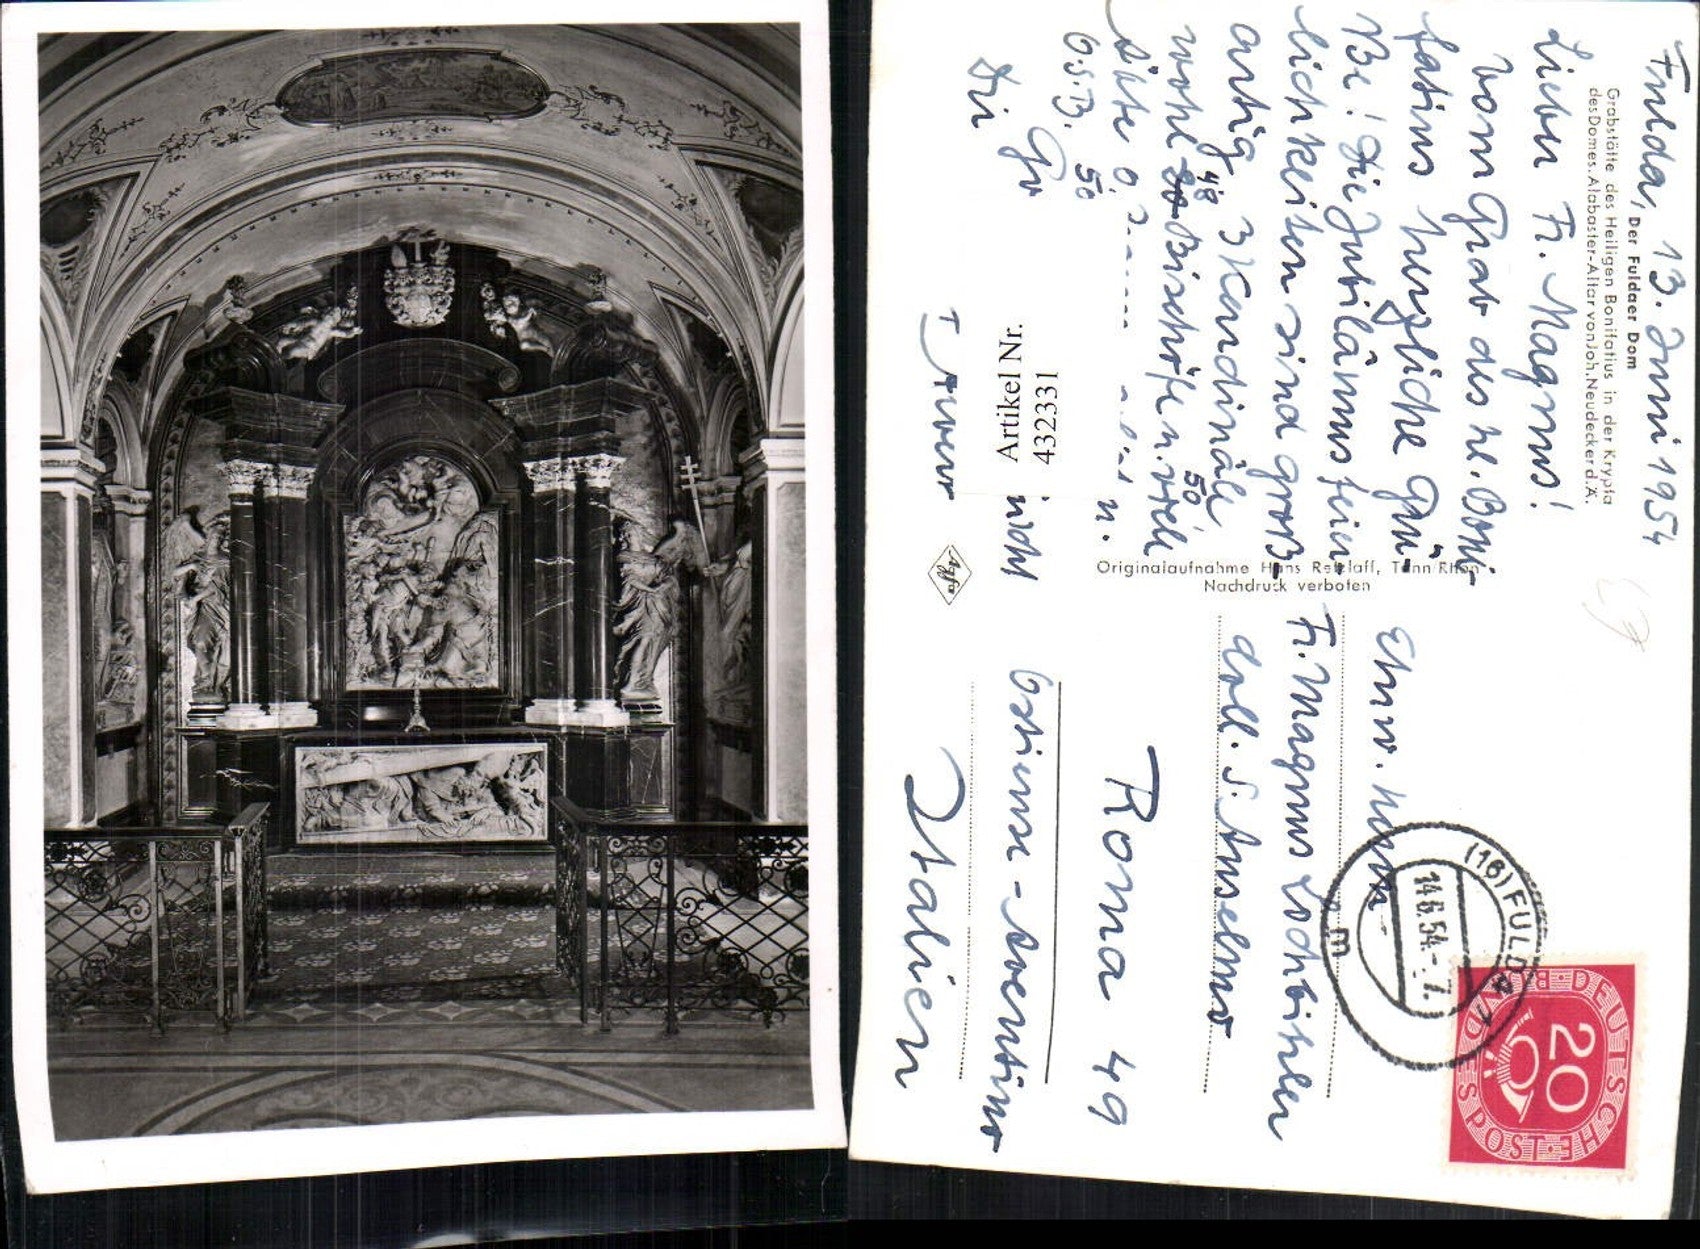 Fulda, 13. Juni 1954
Der Fuldaer Dom
Grabstätte des Heiligen Bonifatius in der Krypta
des Domes. Alabaster-Altar von Joh. Neudecker d. Ä.
Lieber Fr. Magnus!
Vom Grab des hl. Boni-
fatius herzliche Grü-
ße! Die Jubiläumsfeier-
lichkeiten sind groß-
artig 3 Kardinäle
48 50
wohl Bischöfe u. viele
Äbte O.
O.S.B. 50
u.
nicht
Artikel Nr.
432331
Originalaufnahme Hans Retzlaff, Tann/Rhön
Nachdruck verboten
Agfa
Ehrw. Herrn
Fr. Magnus Lochbihler
Coll. S. Anselmo
Roma 49
Ostiense - Aventino
Italien
(16) FULDA
14.6.54.-7.
m
DEUTSCHE BUNDESPOST
20